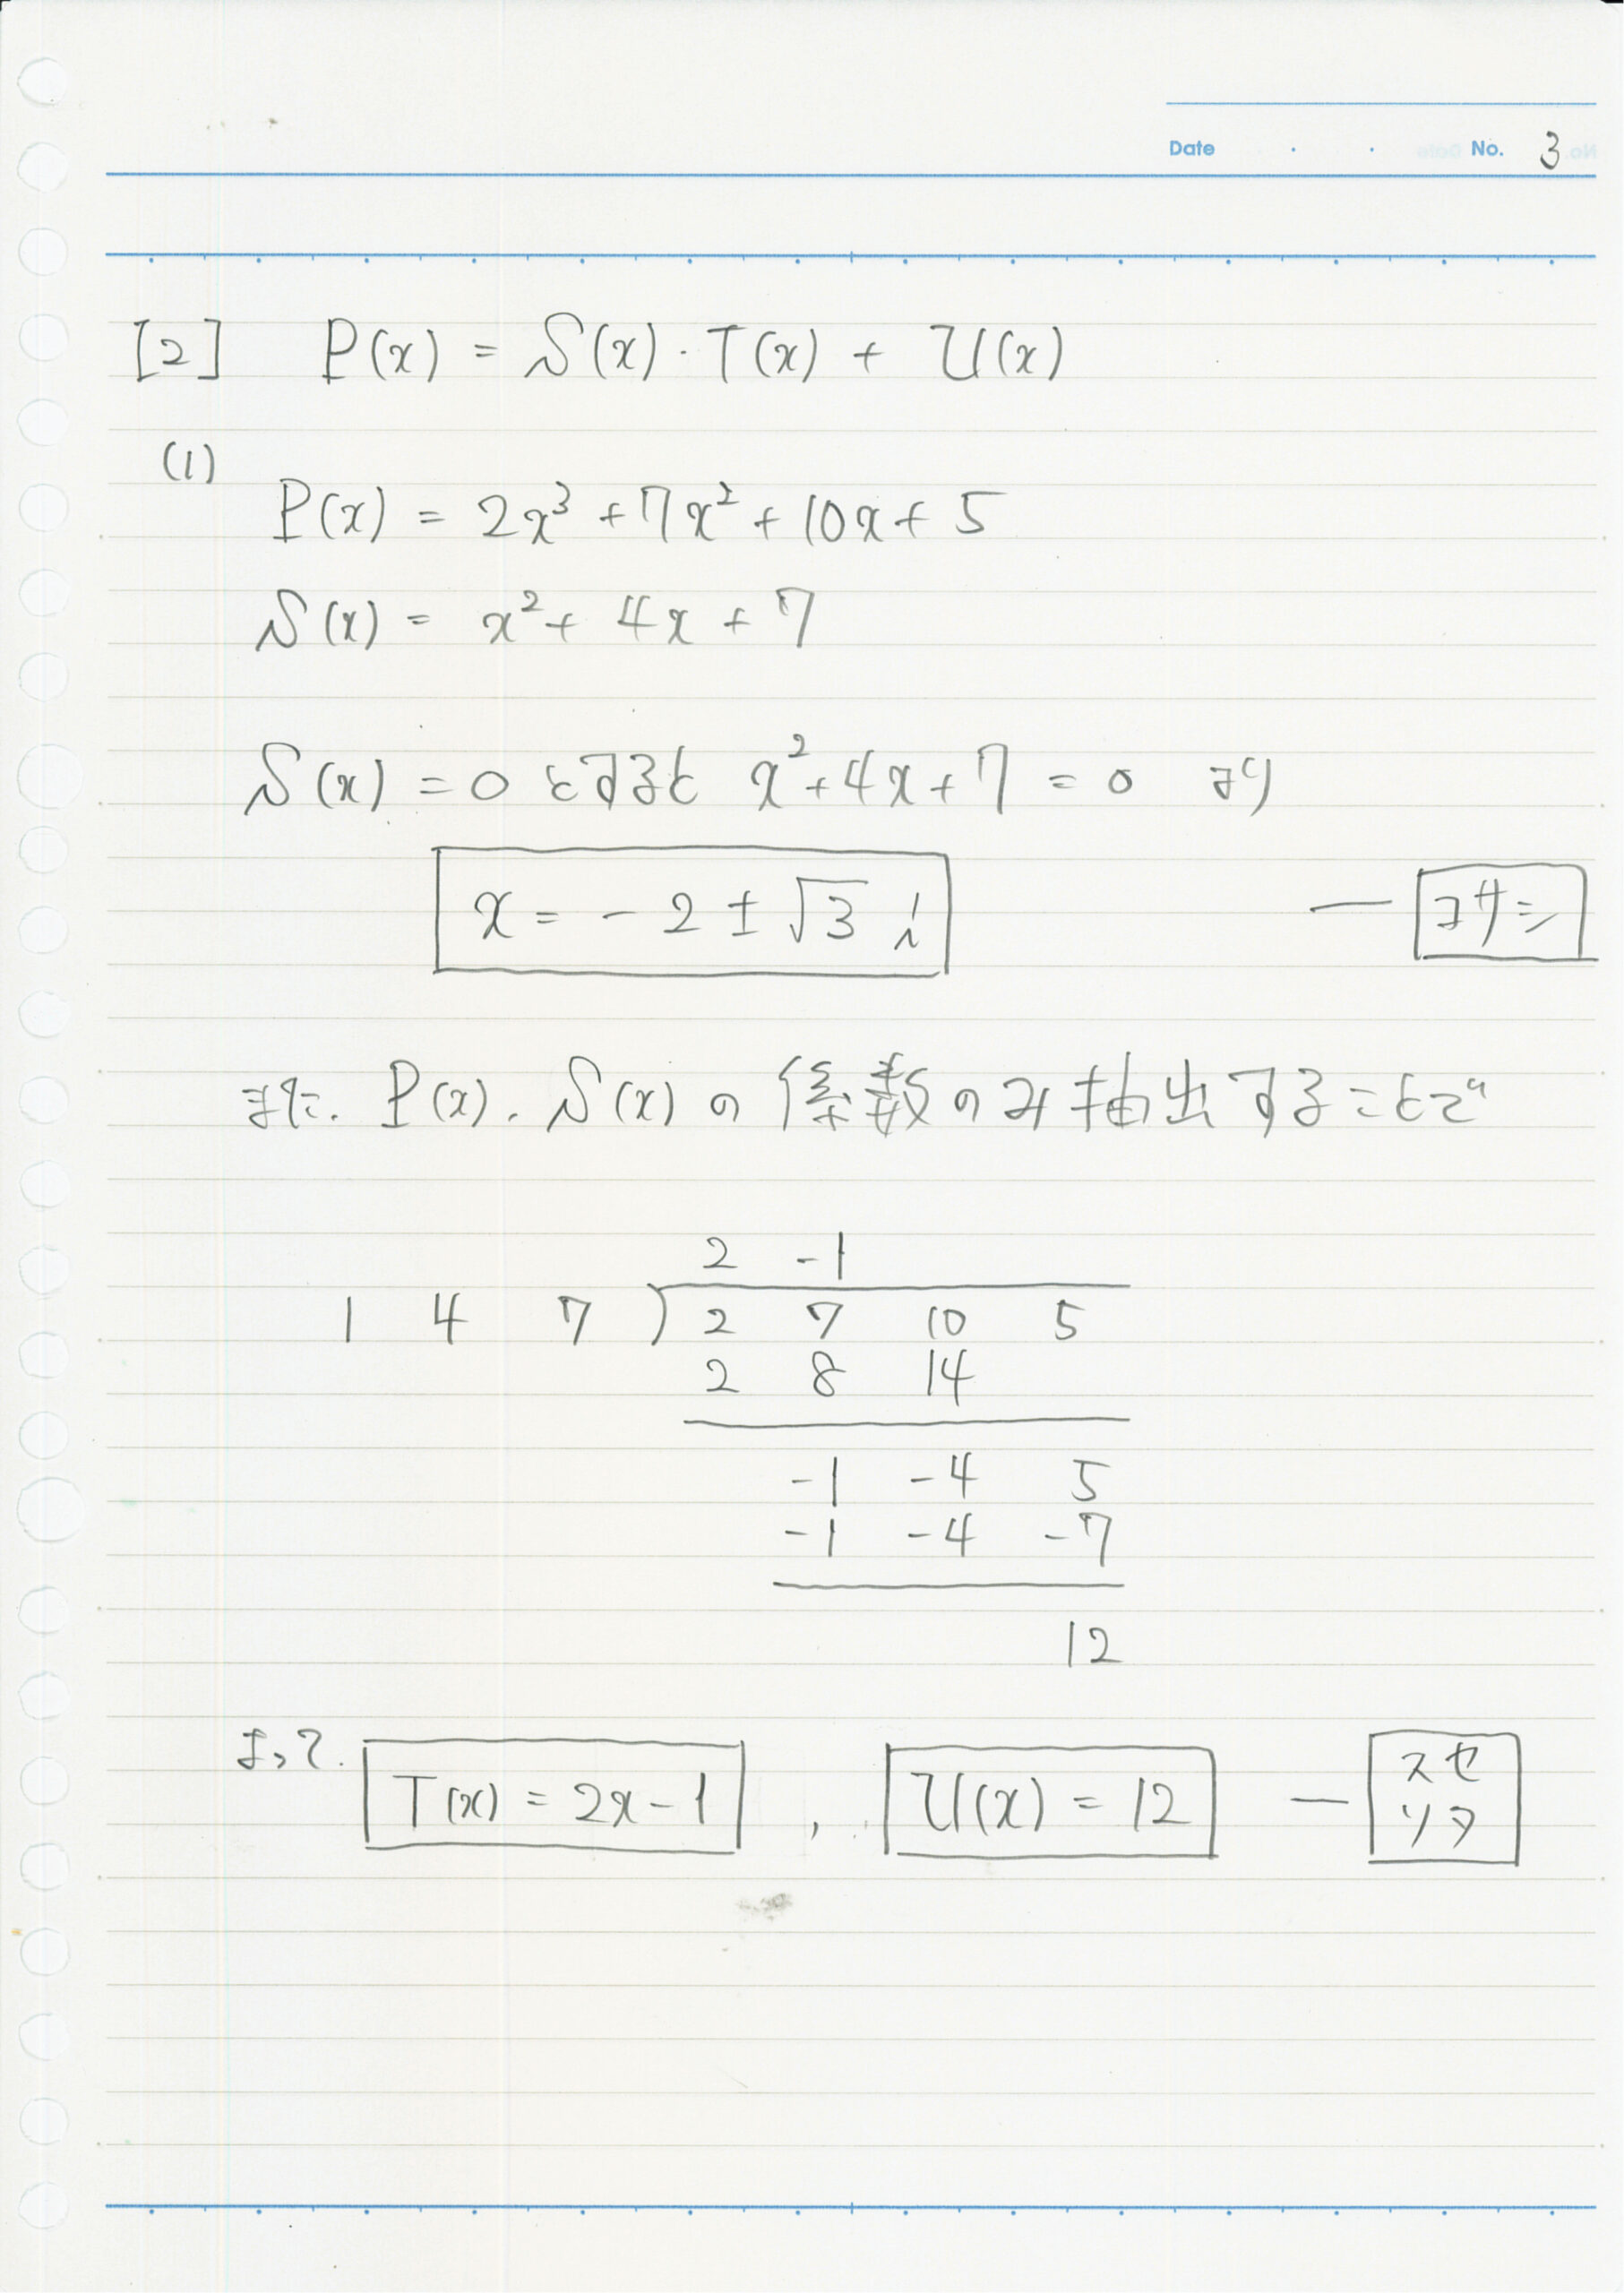 Date . . No. 3
[2] P(x) = S(x)・T(x) + U(x)
(1)
P(x) = 2x³ + 7x² + 10x + 5
S(x) = x² + 4x + 7
S(x) = 0 とすると x² + 4x + 7 = 0 より
x = -2 ± √3 i — コサシ
また、P(x)、S(x) の係数のみ抽出することで
2 -1
1 4 7 ) 2 7 10 5
2 8 14
-1 -4 5
-1 -4 -7
12
よって、 T(x) = 2x-1 , U(x) = 12 — スセ
ソタ